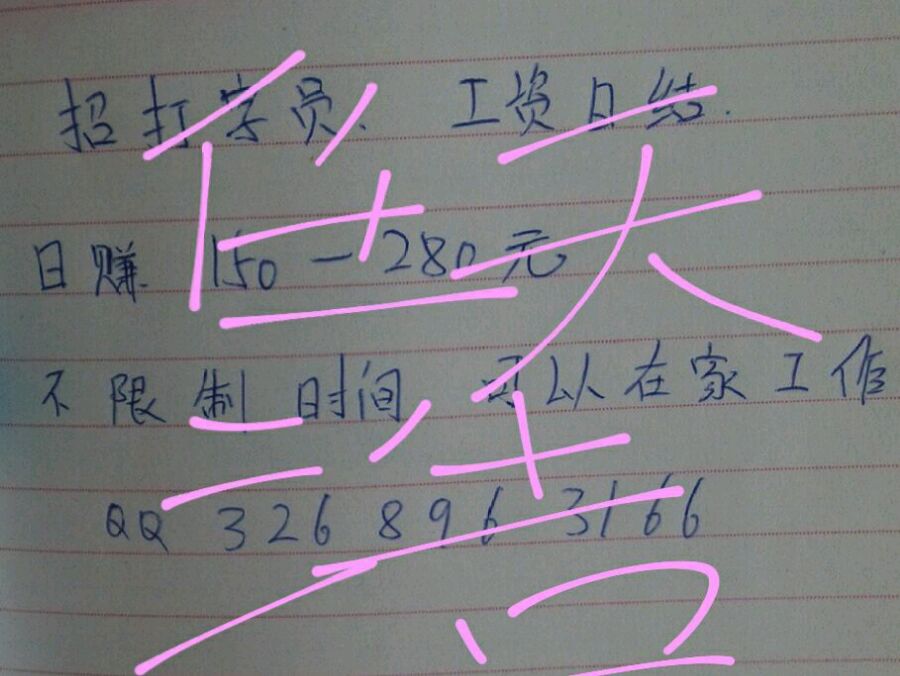 招打字员、 工资日结.
日赚 150一280元
不限制时间, 可以在家工作
QQ 326 896 3166